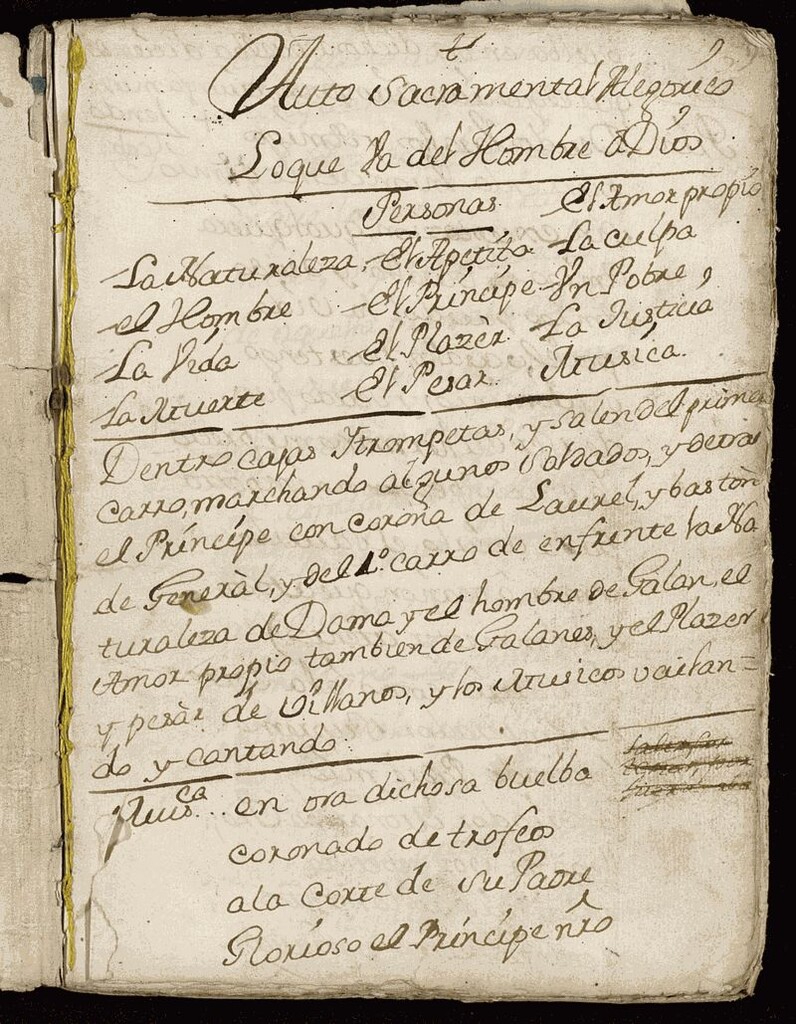 Auto Sacramental Alegorico
Loque Va del Hombre â Dios
Personas. El Amor propio
La Naturaleza, El Apetito La culpa
el Hombre El Príncipe Vn Pobre,
La Vida El Plazèr La Justicia
La Muerte El Pesar. Musica.
Dentro cajas Ytrompetas, y salen del primer
carro, marchando algunos Soldados, y detras
el Príncipe con corona de Laurel, y baston
de Generàl, y del 1.º carro de enfrente la Na
turaleza de Dama y el hombre de Galan, el
Amor propio tambien de Galanes, y el Plazer
y pesàr de Villanos, y los Musicos vailan=
do y cantando.
Musca... en ora dichosa buelba
coronado de trofeos
ala Corte de Su Padre
Glorioso el Príncipe nro